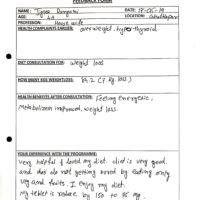 FEEDBACK FORM
NAME: Tyaga Rangwani DATE: 18-06-19
AGE: 48 LOCATION:
PROFESSION: House wife
HEALTH COMPLAINTS EARLIER: overweight, hyperthyroid
DIET CONSULTATION FOR: weight loss
HOW MANY KGS WEIGHTLOSS: 69.2 (7 kg loss)
HEALTH BENEFITS AFTER CONSULTATION: Feeling energetic,
Metabolism improved, weight loss.
YOUR EXPERIENCE WITH THE PROGRAMME:
Very helpful & loved my diet. diet is very good
and does not getting bored by eating only
veg and fruits. I enjoy my diet.
My tablet is reduce by 150 to 75 mg.